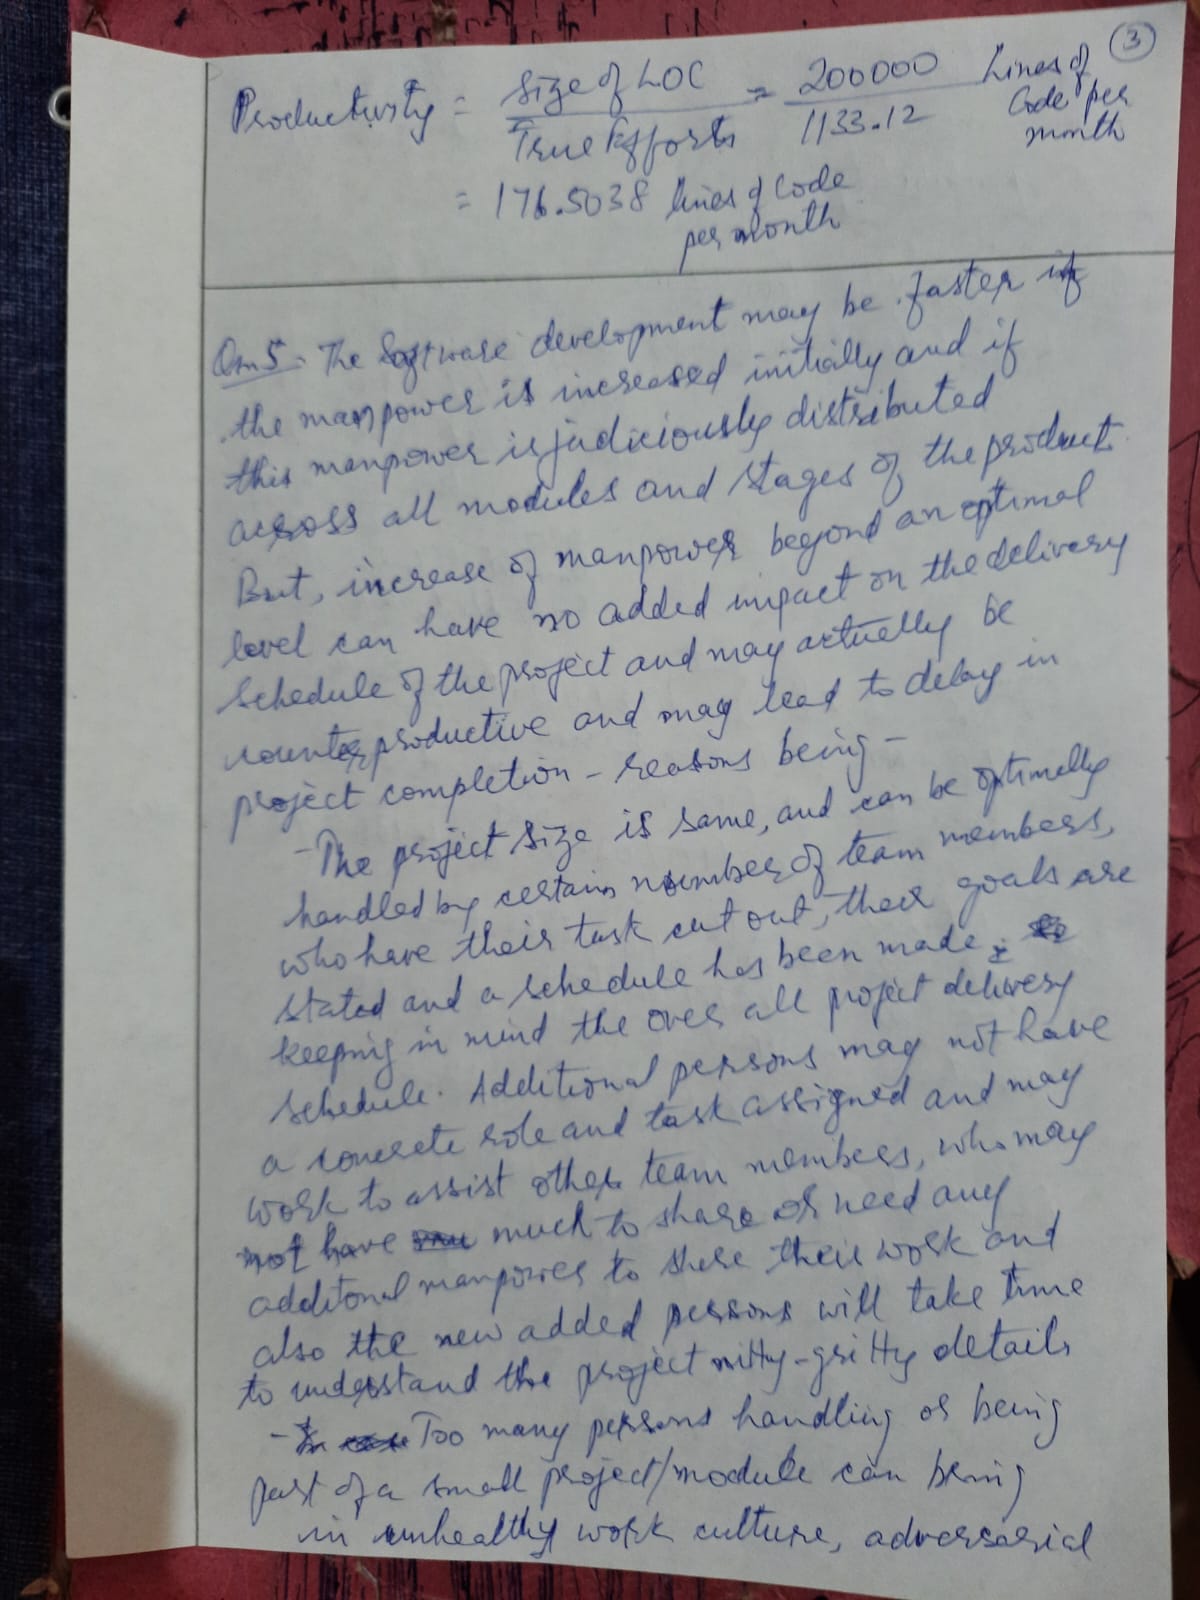 3
Productivity = Size of LOC / True Efforts = 200000 / 1133.12 Lines of Code per month
= 176.5038 lines of Code per month
Qn 5. The Software development may be faster if
the manpower is increased initially and if
this manpower is judiciously distributed
across all modules and stages of the product.
But, increase of manpower beyond an optimal
level can have no added impact on the delivery
schedule of the project and may actually be
counterproductive and may lead to delay in
project completion - reasons being -
- The project size is same, and can be optimally
handled by certain number of team members,
who have their task cut out, their goals are
stated and a schedule has been made
keeping in mind the over all project delivery
schedule. Additional persons may not have
a concrete role and task assigned and may
work to assist other team members, who may
not have much to share or need any
additonal manpower to share their work and
also the new added persons will take time
to understand the project nitty-gritty details
- Too many persons handling or being
part of a small project/module can bring
in unhealthy work culture, adversarial